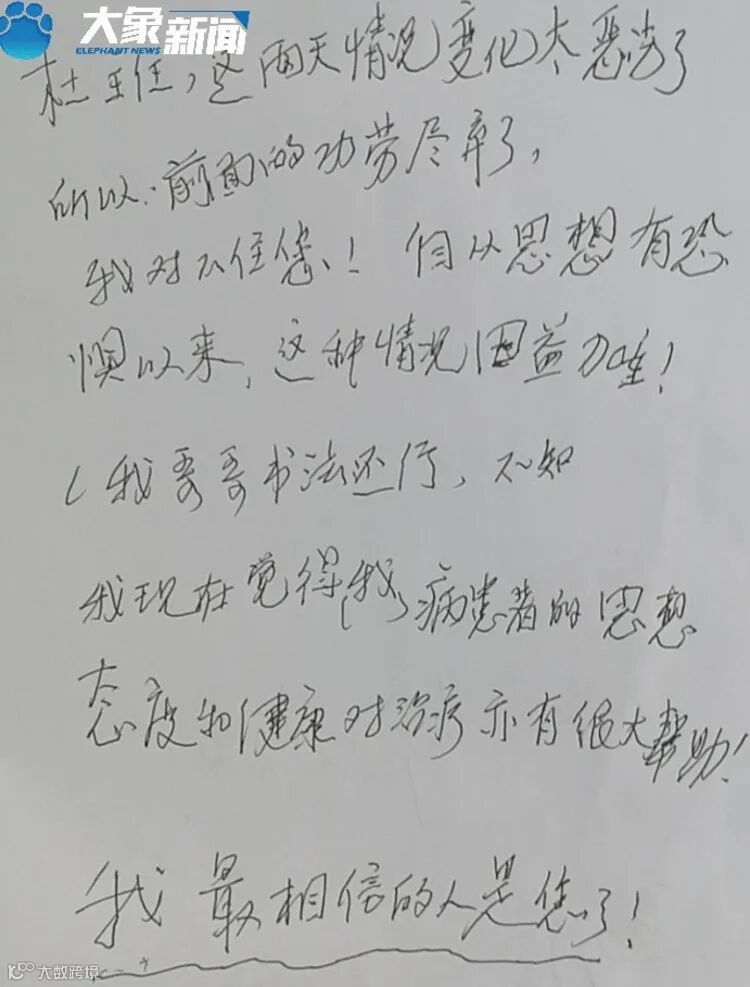 大象新闻
ELEPHANT NEWS
杜主任,这两天情况变化太恶劣了
所以.前面的功劳尽弃了,
我对不住您!自从思想有恐
惧以来,这种情况日益加重!
(我哥哥书法还行,不知
我现在觉得(我)病患者的思想
态度和健康对治疗亦有很大帮助!
我最相信的人是您了!
大数跨境